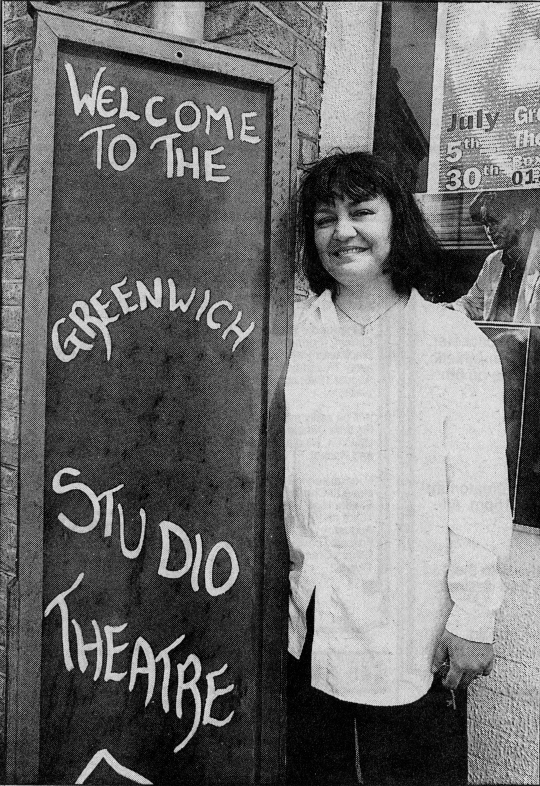 WELCOME
TO THE
GREENWICH
STUDIO
THEATRE
July
5th
30th